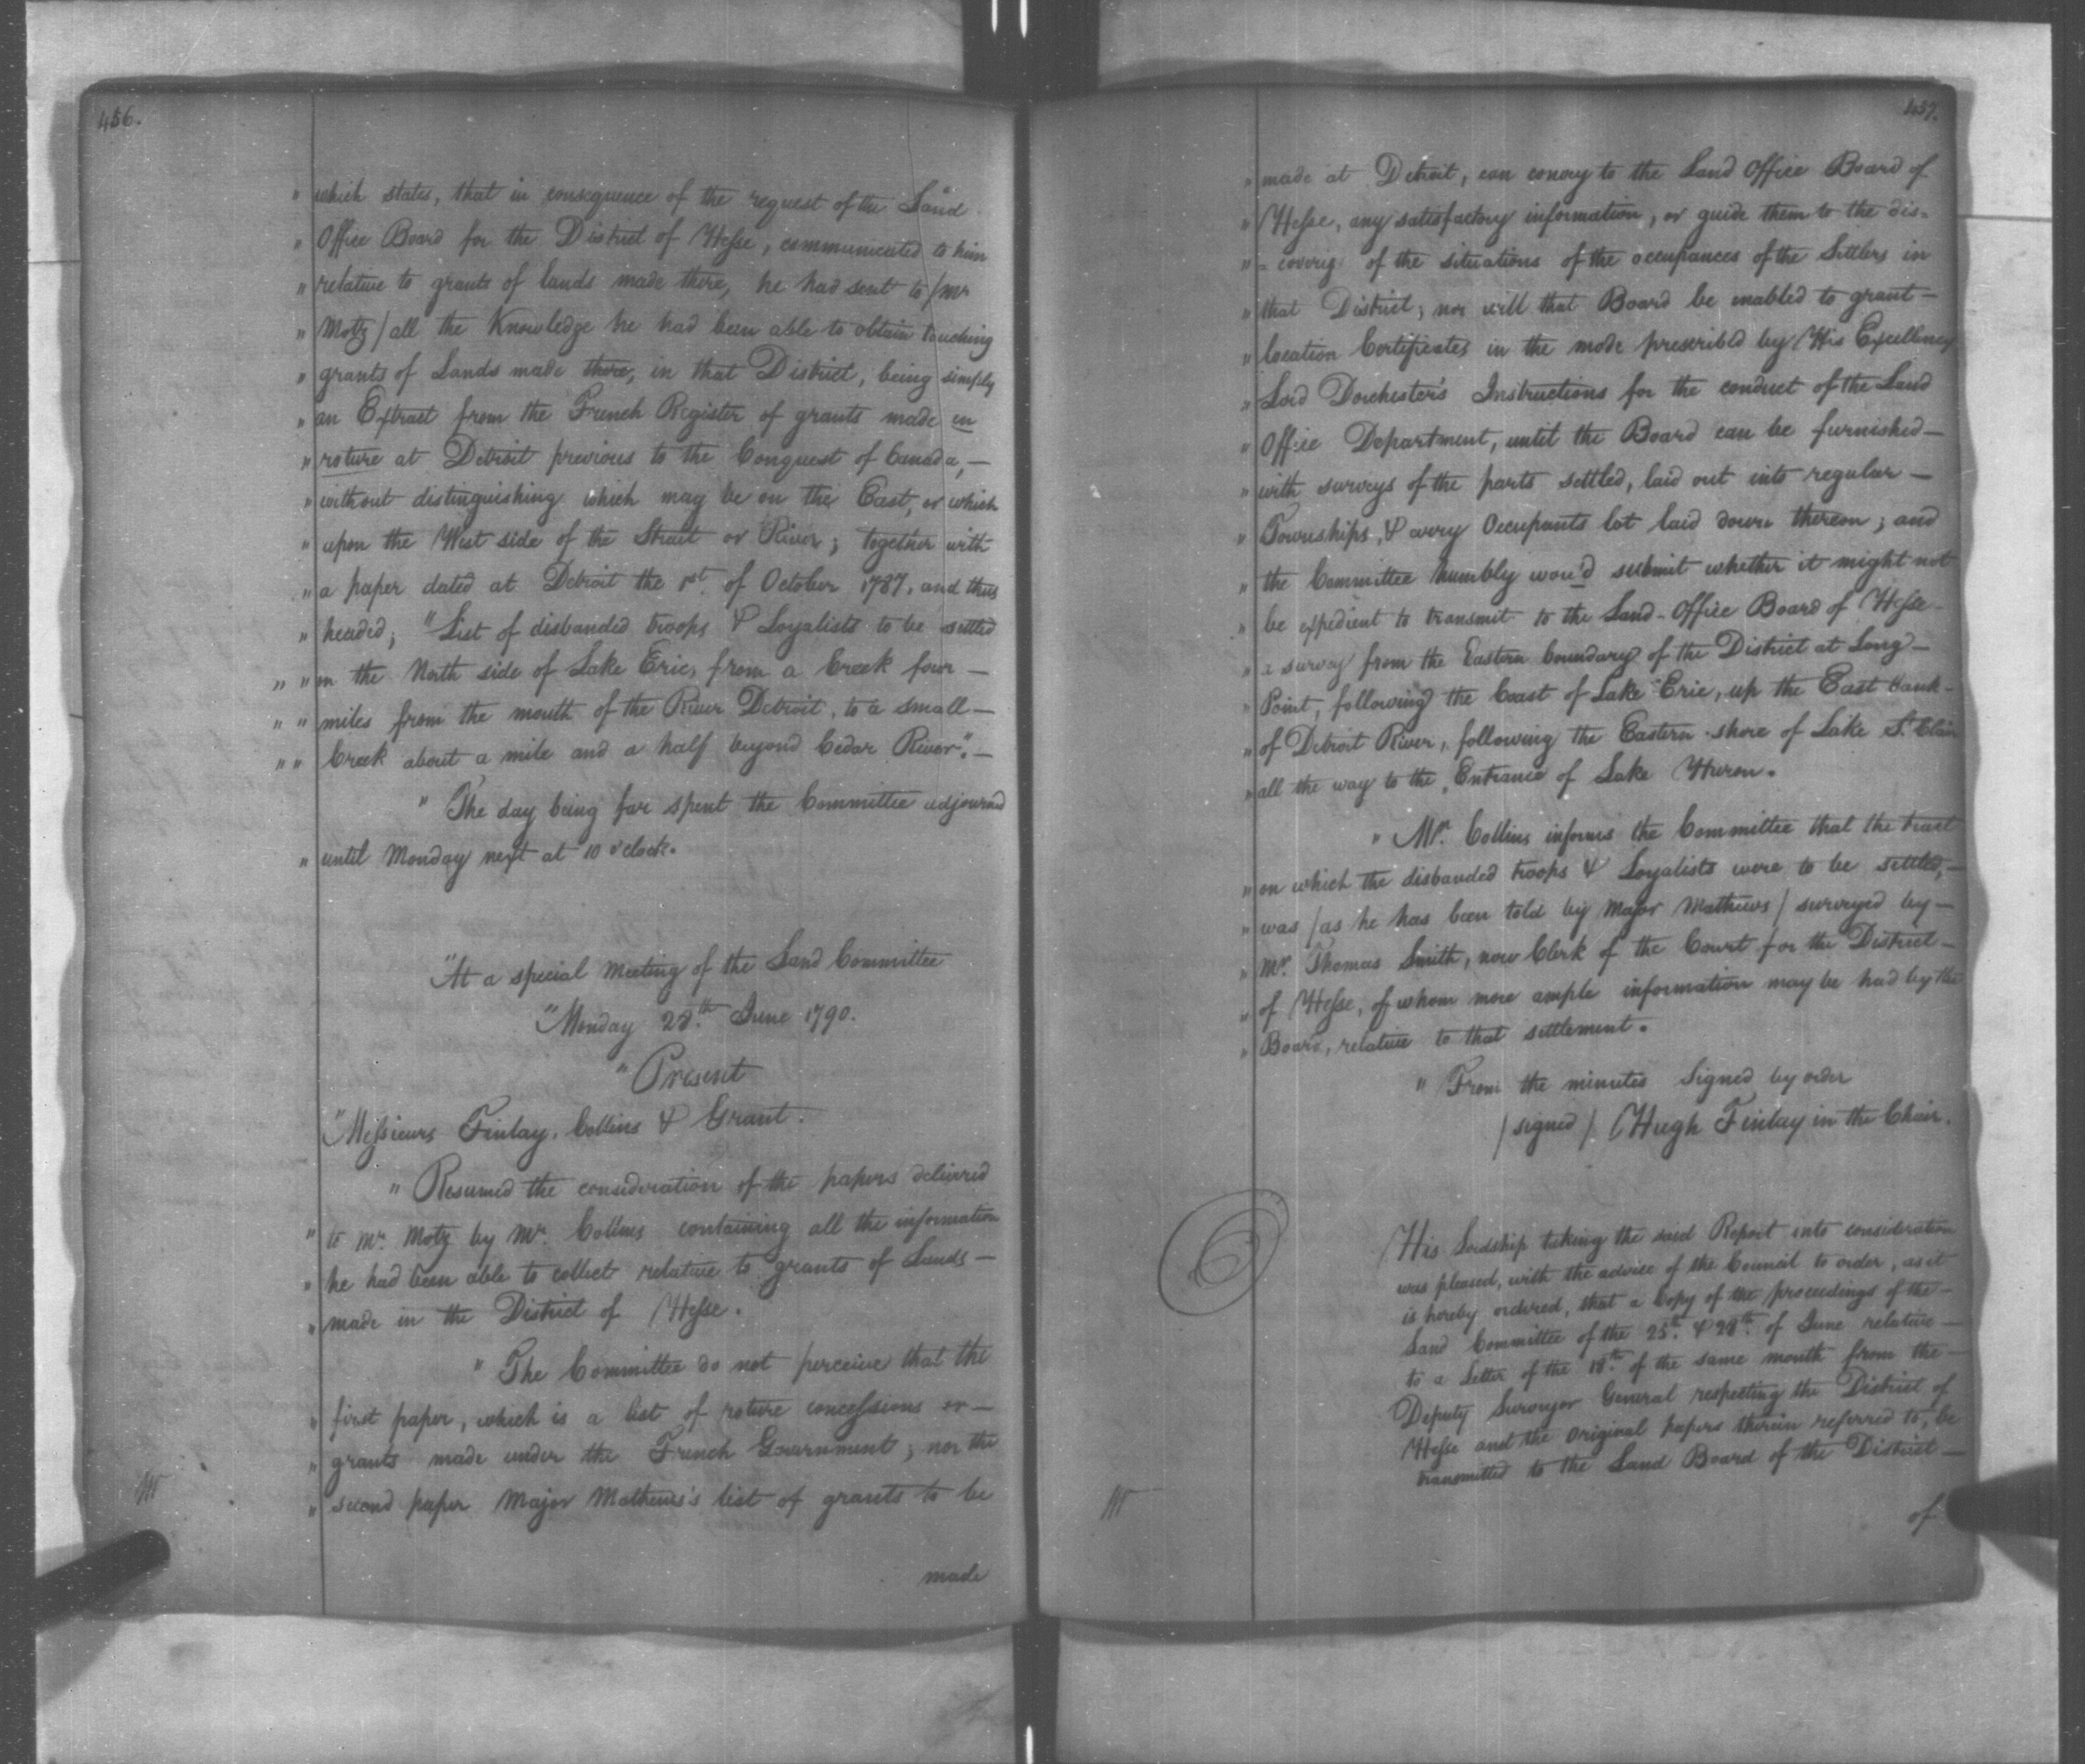 456.
" which states, that in consequence of the request of the Land
" Office Board for the District of Hesse, communicated to him
" relative to grants of lands made there, he had sent to /Mr
" Motz/ all the Knowledge he had been able to obtain touching
" grants of Lands made there, in that District, being simply
" an Extract from the French Register of grants made in
" roture at Detroit previous to the Conquest of Canada, —
" without distinguishing which may be on the East, or which
" upon the West side of the Strait or River; together with
" a paper dated at Detroit the 1st. of October 1787, and thus
" headed; "List of disbanded troops & Loyalists to be settled
" " on the North side of Lake Erie, from a Creek four —
" " miles from the mouth of the River Detroit, to a small —
" " Creek about a mile and a half beyond Cedar River". —
" The day being far spent the Committee adjourned
" until Monday next at 10 o'clock.
"At a special Meeting of the Land Committee
"Monday 28th. June 1790.
"Present
"Messieurs Finlay, Collins & Grant.
" Resumed the consideration of the papers delivered
" to Mr. Motz by Mr. Collins containing all the information
" he had been able to collect relative to grants of Lands —
" made in the District of Hesse.
" The Committee do not perceive that the
" first paper, which is a list of roture concessions or —
" grants made under the French Government; nor the
" second paper Major Mathews's list of grants to be
made
457.
" made at Detroit, can convey to the Land Office Board of
" Hesse, any satisfactory information, or guide them to the dis-
" = covery of the situations of the occupances of the Settlers in
" that District; nor will that Board be enabled to grant —
" location Certificates in the mode prescribed by His Excellency
" Lord Dorchester's Instructions for the conduct of the Land
" Office Department, until the Board can be furnished —
" with surveys of the parts settled, laid out into regular —
" Townships, & every Occupants lot laid down thereon; and
" the Committee humbly wou'd submit whether it might not
" be expedient to transmit to the Land-Office Board of Hesse
" a survey from the Eastern boundary of the District at Long —
" Point, following the Coast of Lake Erie, up the East bank —
" of Detroit River, following the Eastern shore of Lake St. Clair
" all the way to the Entrance of Lake Huron.
" Mr. Collins informs the Committee that the tract
" on which the disbanded troops & Loyalists were to be settled, —
" was /as he has been told by Major Mathews/ surveyed by —
" Mr. Thomas Smith, now Clerk of the Court for the District —
" of Hesse, of whom more ample information may be had by the
" Board, relative to that settlement.
" From the minutes Signed by order
/signed/ Hugh Finlay in the Chair.
His Lordship taking the said Report into consideration
was pleased, with the advice of the Council to order, as it
is hereby ordered, that a Copy of the proceedings of the —
Land Committee of the 25th. & 28th. of June relative —
to a Letter of the 18th. of the same month from the —
Deputy Surveyor General respecting the District of
Hesse and the original papers therein referred to, be
transmitted to the Land Board of the District —
of